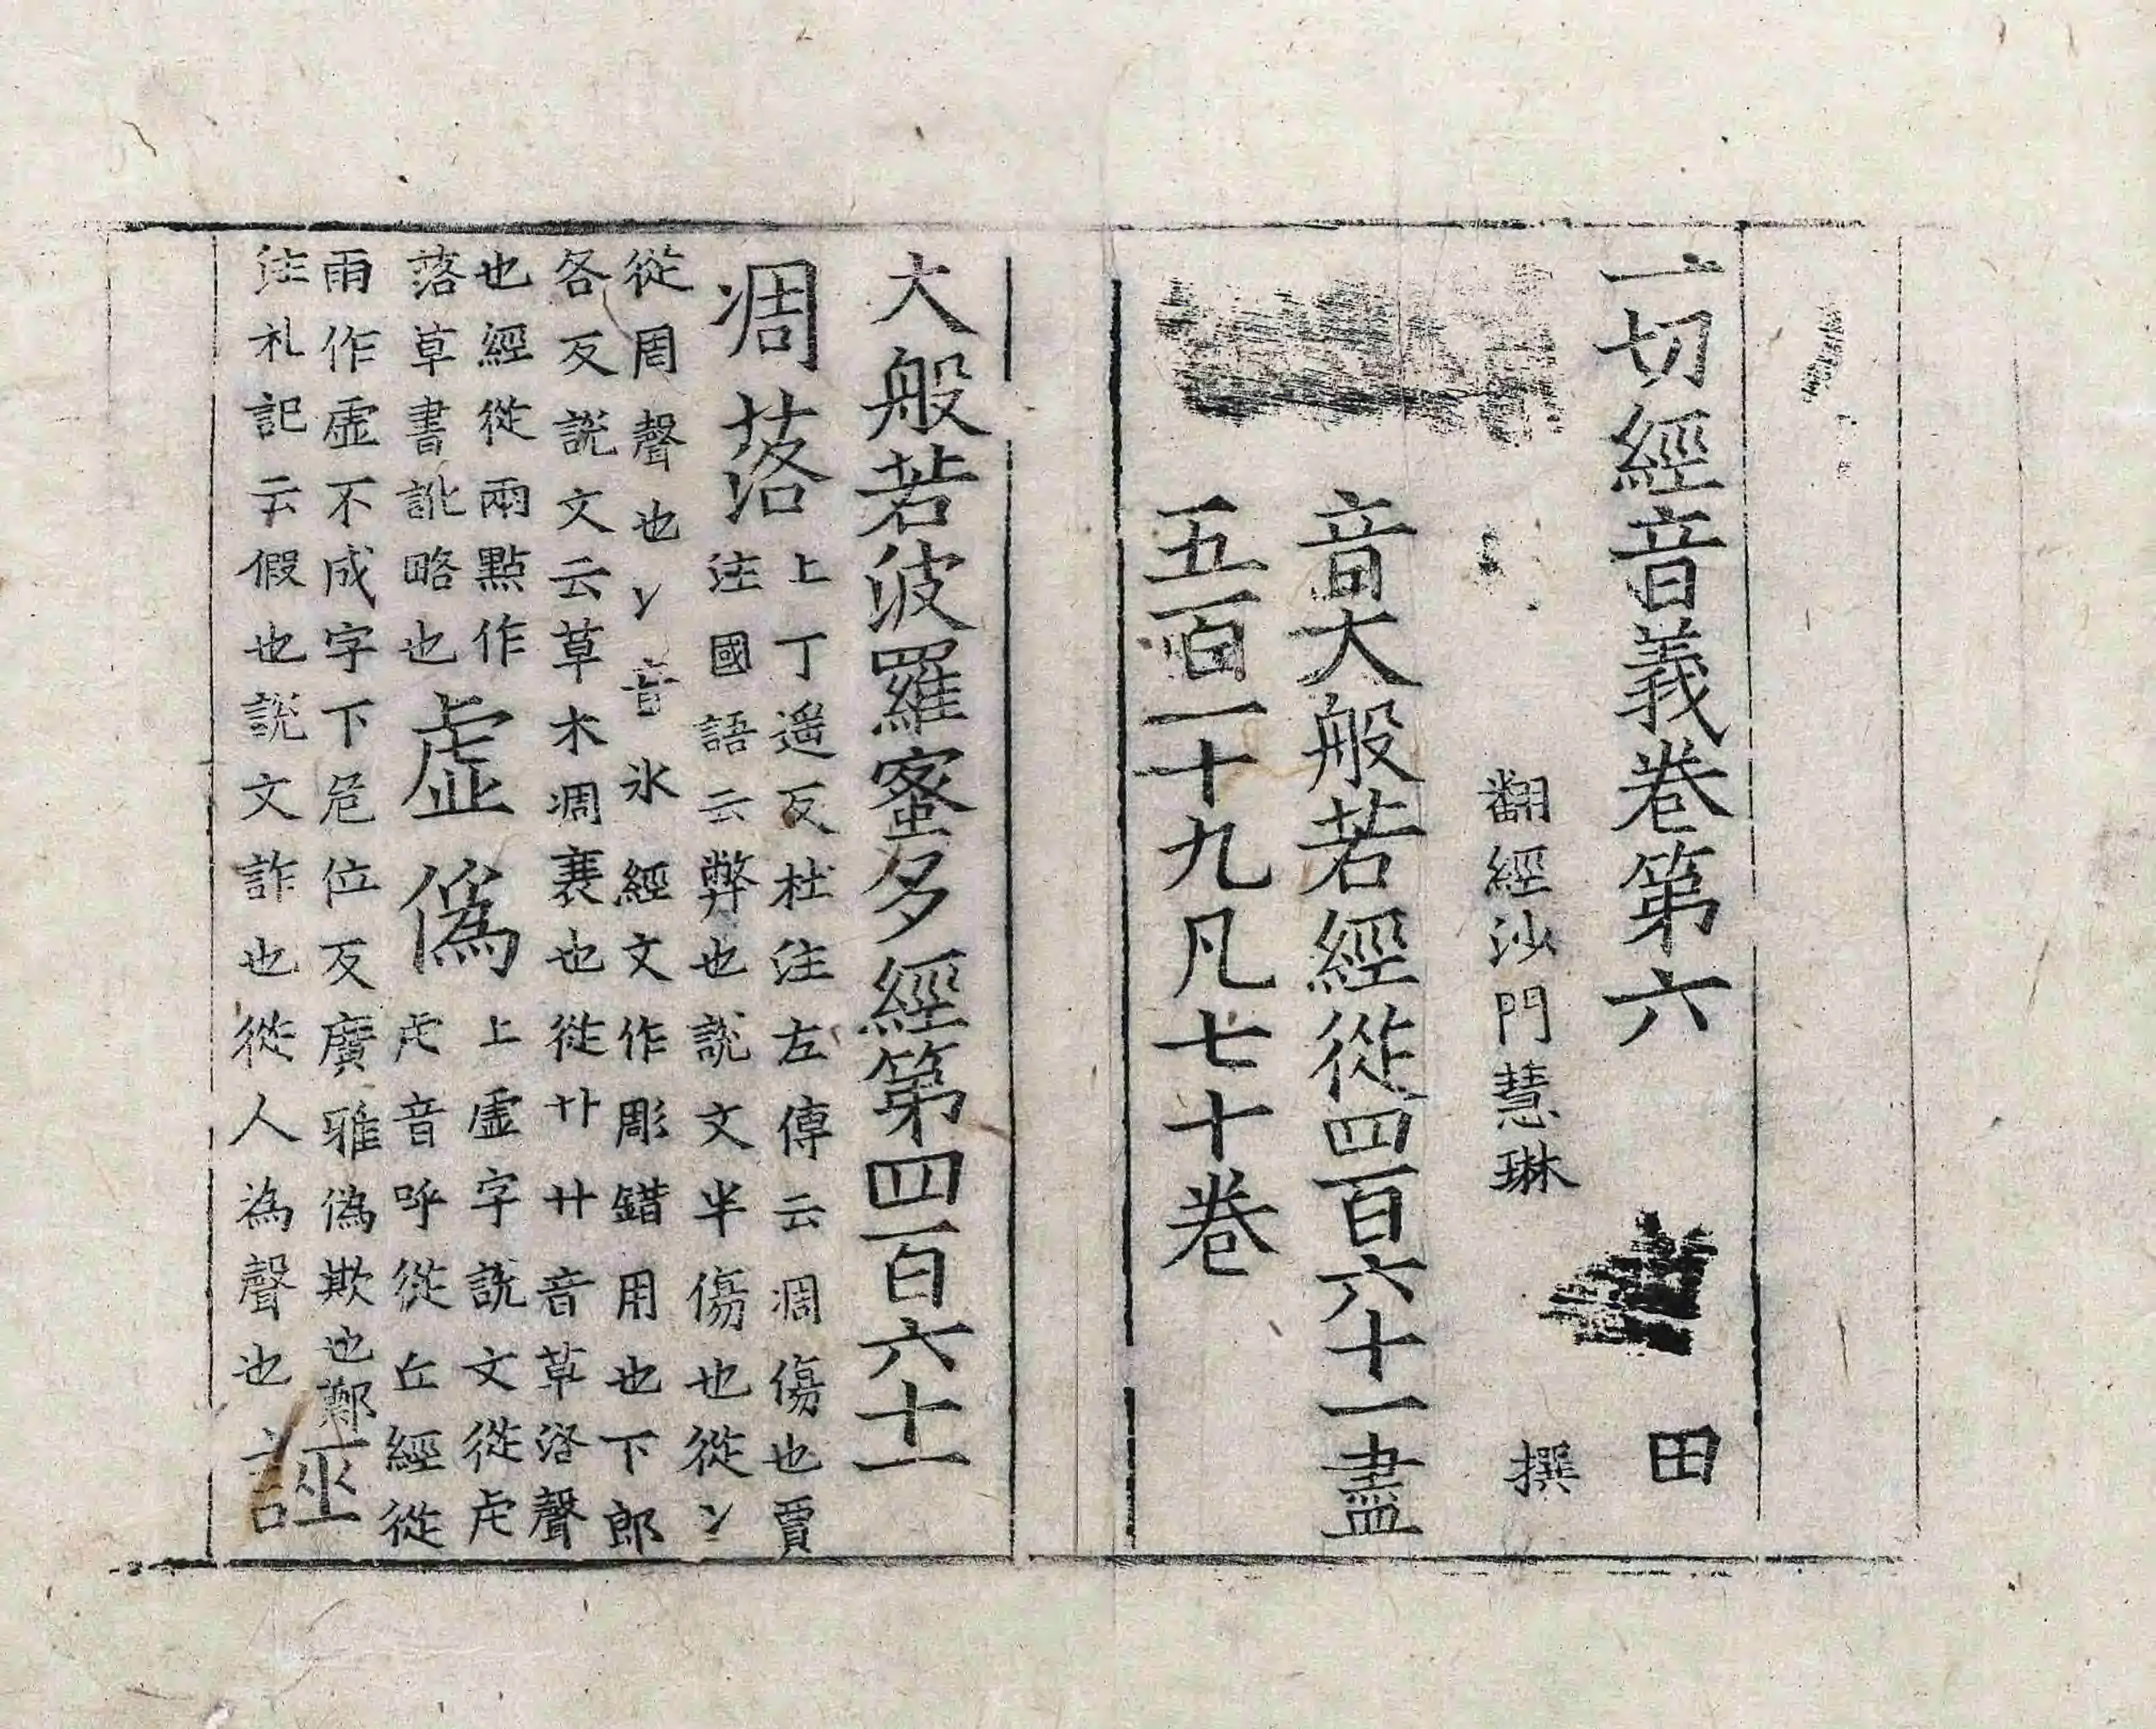 一切經音義卷第六 田
翻經沙門慧琳 撰
音大般若經從四百六十一盡
五百一十九凡七十卷
大般若波羅蜜多經第四百六十一
凋落
上丁遥反杜注左傳云凋傷也賈
注國語云弊也說文半傷也從冫
從周聲也冫音氷經文作彫錯用也下郎
各反說文云草木凋衰也從艹艹音草洛聲
也經從兩點作
落草書訛略也
虛偽
上虛字說文從虍
虍音呼從丘經從
雨作虛不成字下危位反廣雅偽欺也鄭
注礼記云假也說文詐也從人為聲也
誣